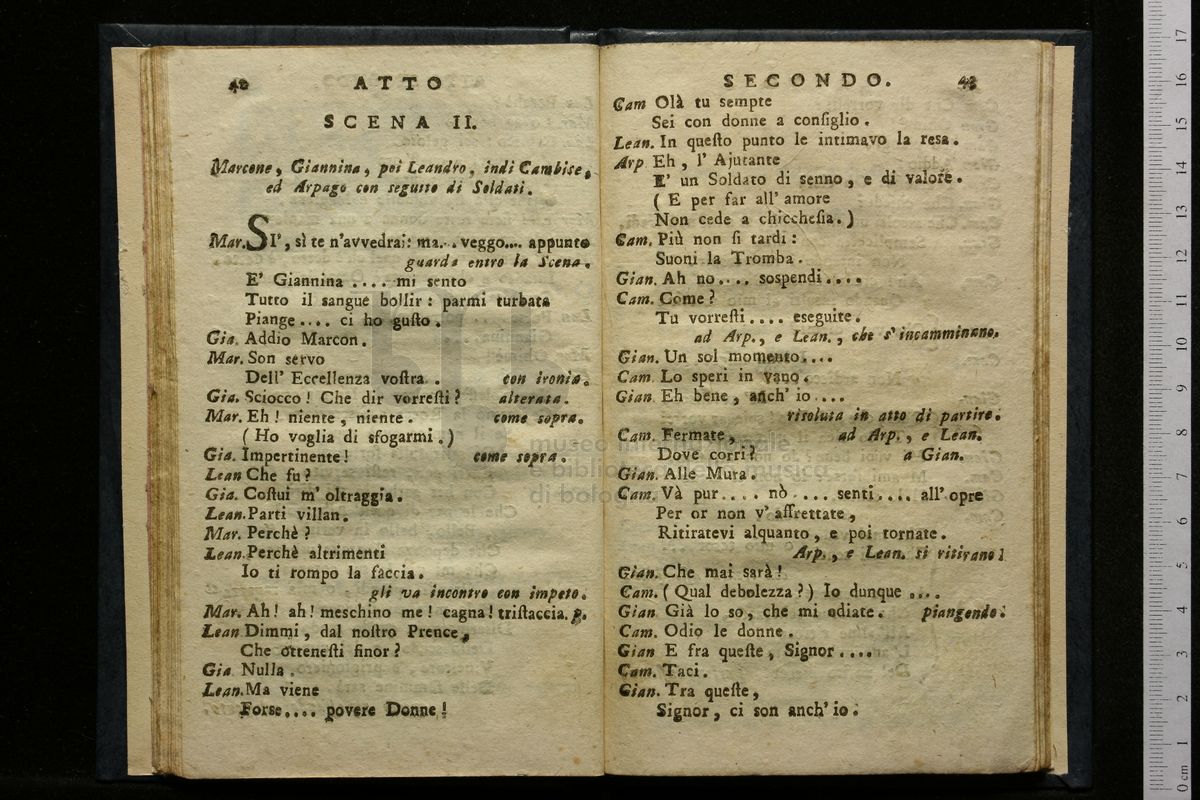 42 ATTO
SCENA II.
Marcone, Giannina, poi Leandro, indi Cambise,
ed Arpago con seguito di Soldati.
Mar. SI', sì te n'avvedrai: ma... veggo.... appunto
guarda entro la Scena.
E' Giannina .... mi sento
Tutto il sangue bollir: parmi turbata
Piange .... ci ho gusto.
Gia. Addio Marcon.
Mar. Son servo
Dell' Eccellenza vostra. con ironia.
Gia. Sciocco! Che dir vorresti? alterata.
Mar. Eh! niente, niente. come sopra.
(Ho voglia di sfogarmi.)
Gia. Impertinente! come sopra.
Lean Che fu?
Gia. Costui m' oltraggia.
Lean. Parti villan.
Mar. Perchè?
Lean. Perchè altrimenti
Io ti rompo la faccia.
gli va incontro con impeto.
Mar. Ah! ah! meschino me! cagna! tristaccia. p.
Lean Dimmi, dal nostro Prence,
Che ottenesti finor?
Gia. Nulla.
Lean. Ma viene
Forse.... povere Donne!
SECONDO. 43
Cam Olà tu sempte
Sei con donne a consiglio.
Lean. In questo punto le intimavo la resa.
Arp Eh, l' Ajutante
E' un Soldato di senno, e di valore.
(E per far all' amore
Non cede a chicchesia.)
Cam. Più non si tardi:
Suoni la Tromba.
Gian. Ah no.... sospendi....
Cam. Come?
Tu vorresti.... eseguite.
ad Arp., e Lean., che s'incamminano.
Gian. Un sol momento....
Cam. Lo speri in vano.
Gian. Eh bene, anch' io ....
risoluta in atto di partire.
Cam. Fermate, ad Arp., e Lean.
Dove corri? a Gian.
Gian. Alle Mura.
Cam. Và pur.... nò .... senti.... all' opre
Per or non v' affrettate,
Ritiratevi alquanto, e poi tornate.
Arp., e Lean. si ritirano.
Gian. Che mai sarà!
Cam. (Qual debolezza?) Io dunque ....
Gian. Già lo so, che mi odiate. piangendo.
Cam. Odio le donne.
Gian E fra queste, Signor....
Cam. Taci.
Gian. Tra queste,
Signor, ci son anch' io.
museo internazionale
e biblioteca della musica
di bologna
0 cm 1 2 3 4 5 6 7 8 9 10 11 12 13 14 15 16 17